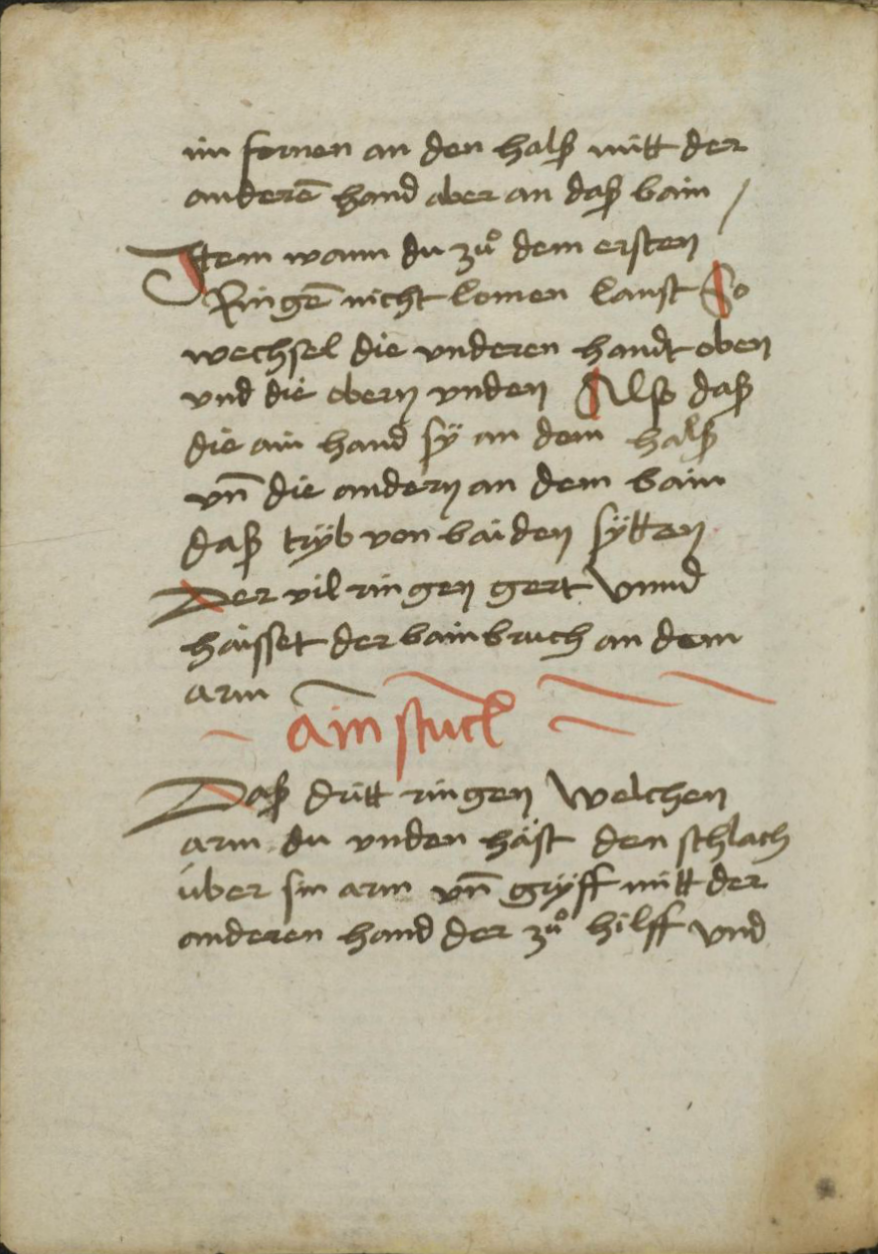 im fornen an den halß mitt der
anderē hand aber an daß bain /
Item wann du zů dem ersten
Ringē nicht komen kanst So
wechsel die vnderen handt oben
vnd die obern vnden Also daß
die ain hand sÿ an dem halß
vn̄ die andern an dem bain
daß trÿb von baiden sÿtten
Der vil ringen gert Vnnd
haisset der bainbruch an dem
arm
ain stuck
Daß dritt ringen Welchen
arm du vnden häst den schlach
über sin arm vn̄ grÿff mitt der
anderen hand der zů hilff vnd